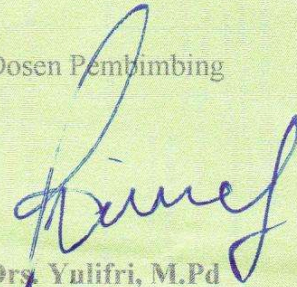 Dosen Pembimbing
Drs. Yulifri, M.Pd